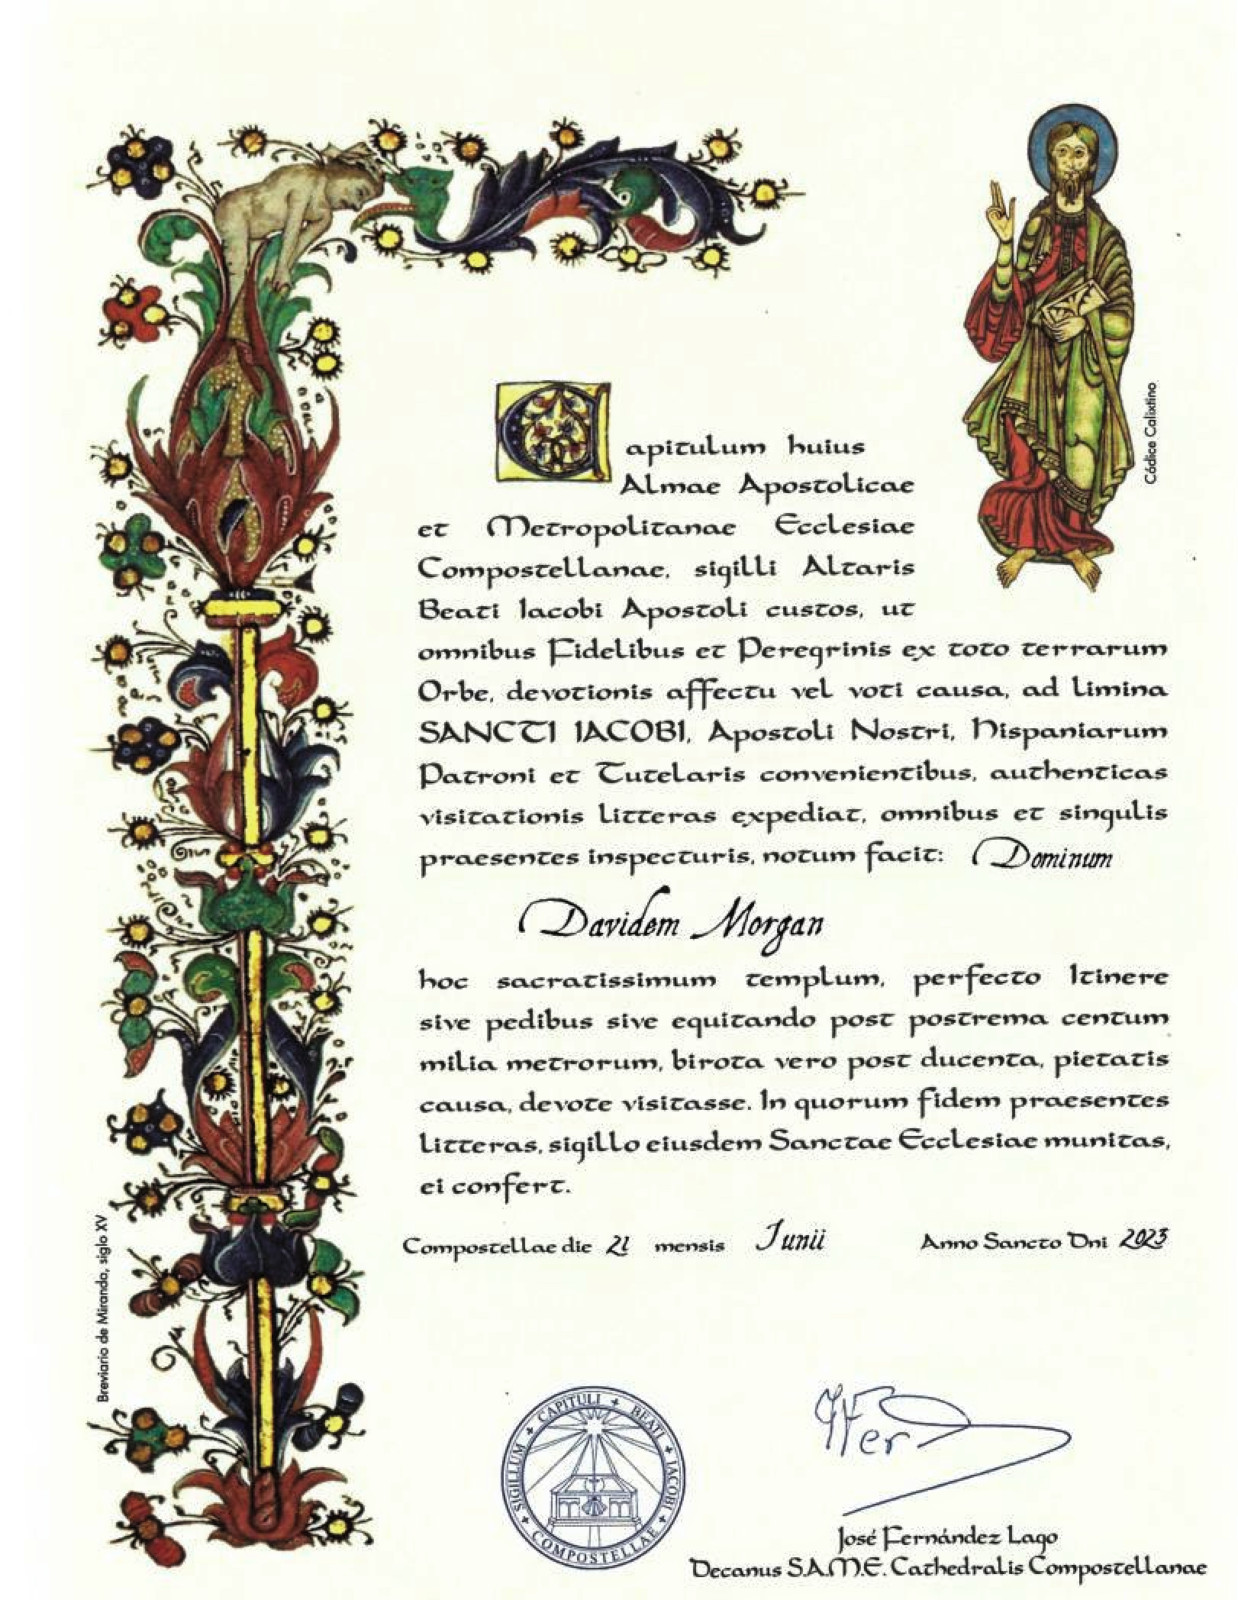 Capitulum huius
Almae Apostolicae
et Metropolitanae Ecclesiae
Compostellanae, sigilli Altaris
Beati Iacobi Apostoli custos, ut
omnibus Fidelibus et Peregrinis ex toto terrarum
Orbe, devotionis affectu vel voti causa, ad limina
SANCTI IACOBI, Apostoli Nostri, Hispaniarum
Patroni et Tutelaris convenientibus, authenticas
visitationis litteras expediat, omnibus et singulis
praesentes inspecturis, notum facit: Dominum
Davidem Morgan
hoc sacratissimum templum, perfecto Itinere
sive pedibus sive equitando post postrema centum
milia metrorum, birota vero post ducenta, pietatis
causa, devote visitasse. In quorum fidem praesentes
litteras, sigillo eiusdem Sanctae Ecclesiae munitas,
ei confert.
Compostellae die 21 mensis Junii Anno Sancto Dni 2023
Códice Calixtino
Breviario de Miranda, siglo XV
SIGILLUM + CAPITULI + BEATI + IACOBI + COMPOSTELLAE +
José Fernández Lago
Decanus S.A.M.E. Cathedralis Compostellanae